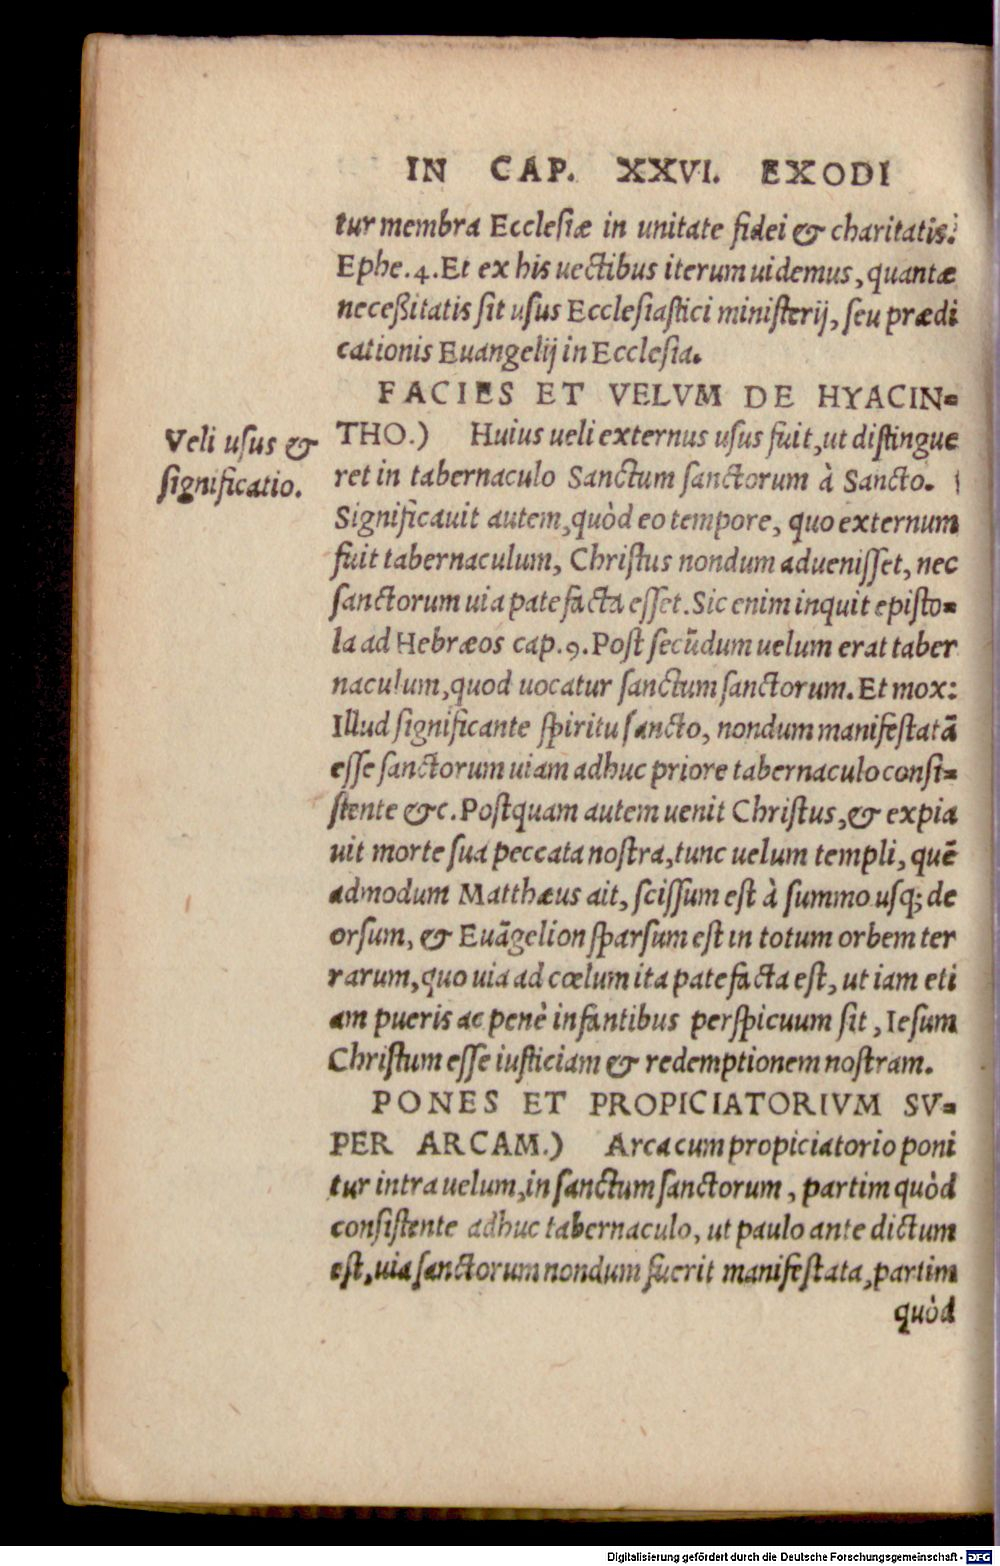 IN CAP. XXVI. EXODI
tur membra Ecclesiæ in unitate fidei & charitatis.
Ephe. 4. Et ex his uectibus iterum uidemus, quantæ
neceßitatis sit usus Ecclesiastici ministerij, seu prædi
cationis Euangelij in Ecclesia.
FACIES ET VELVM DE HYACIN=
THO.) Huius ueli externus usus fuit, ut distingue
Veli usus &
significatio.
ret in tabernaculo Sanctum sanctorum à Sancto.
Significauit autem, quòd eo tempore, quo externum
fuit tabernaculum, Christus nondum aduenisset, nec
sanctorum uia patefacta esset. Sic enim inquit episto=
la ad Hebræos cap. 9. Post secūdum uelum erat taber
naculum, quod uocatur sanctum sanctorum. Et mox:
Illud significante spiritu sancto, nondum manifestatā
esse sanctorum uiam adhuc priore tabernaculo consi=
stente &c. Postquam autem uenit Christus, & expia
uit morte sua peccata nostra, tunc uelum templi, quē
admodum Matthæus ait, scissum est à summo usq; de
orsum, & Euāgelion sparsum est in totum orbem ter
rarum, quo uia ad cœlum ita patefacta est, ut iam eti
am pueris ac penè infantibus perspicuum sit, Iesum
Christum esse iusticiam & redemptionem nostram.
PONES ET PROPICIATORIVM SV=
PER ARCAM.) Arca cum propiciatorio poni
tur intra uelum, in sanctum sanctorum, partim quòd
consistente adhuc tabernaculo, ut paulo ante dictum
est, uia sanctorum nondum fuerit manifestata, partim
quòd
Digitalisierung gefördert durch die Deutsche Forschungsgemeinschaft - DFG